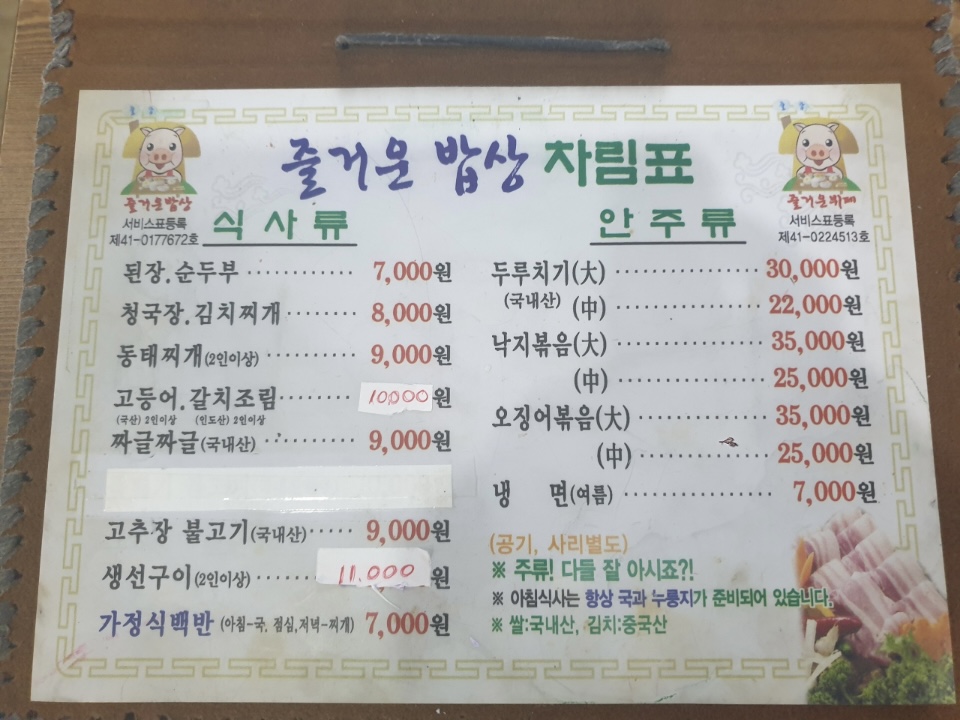 즐거운 밥상 차림표
즐거운밥상
서비스표등록
제41-0177672호
즐거운뷔페
서비스표등록
제41-0224513호
식사류
된장.순두부 ············ 7,000원
청국장.김치찌개 ········ 8,000원
동태찌개(2인이상) ·········· 9,000원
고등어.갈치조림 ········ 10,000원
(국산) 2인이상 (인도산) 2인이상
짜글짜글(국내산) ·········· 9,000원
고추장 불고기(국내산) ····· 9,000원
생선구이(2인이상) ······ 11,000원
가정식백반 (아침-국, 점심,저녁-찌개) 7,000원
안주류
두루치기(大) ················ 30,000원
(국내산) (中) ················ 22,000원
낙지볶음(大) ················ 35,000원
(中) ················ 25,000원
오징어볶음(大) ·············· 35,000원
(中) ·············· 25,000원
냉 면(여름) ················ 7,000원
(공기, 사리별도)
※ 주류! 다들 잘 아시죠?!
※ 아침식사는 항상 국과 누룽지가 준비되어 있습니다.
※ 쌀:국내산, 김치:중국산